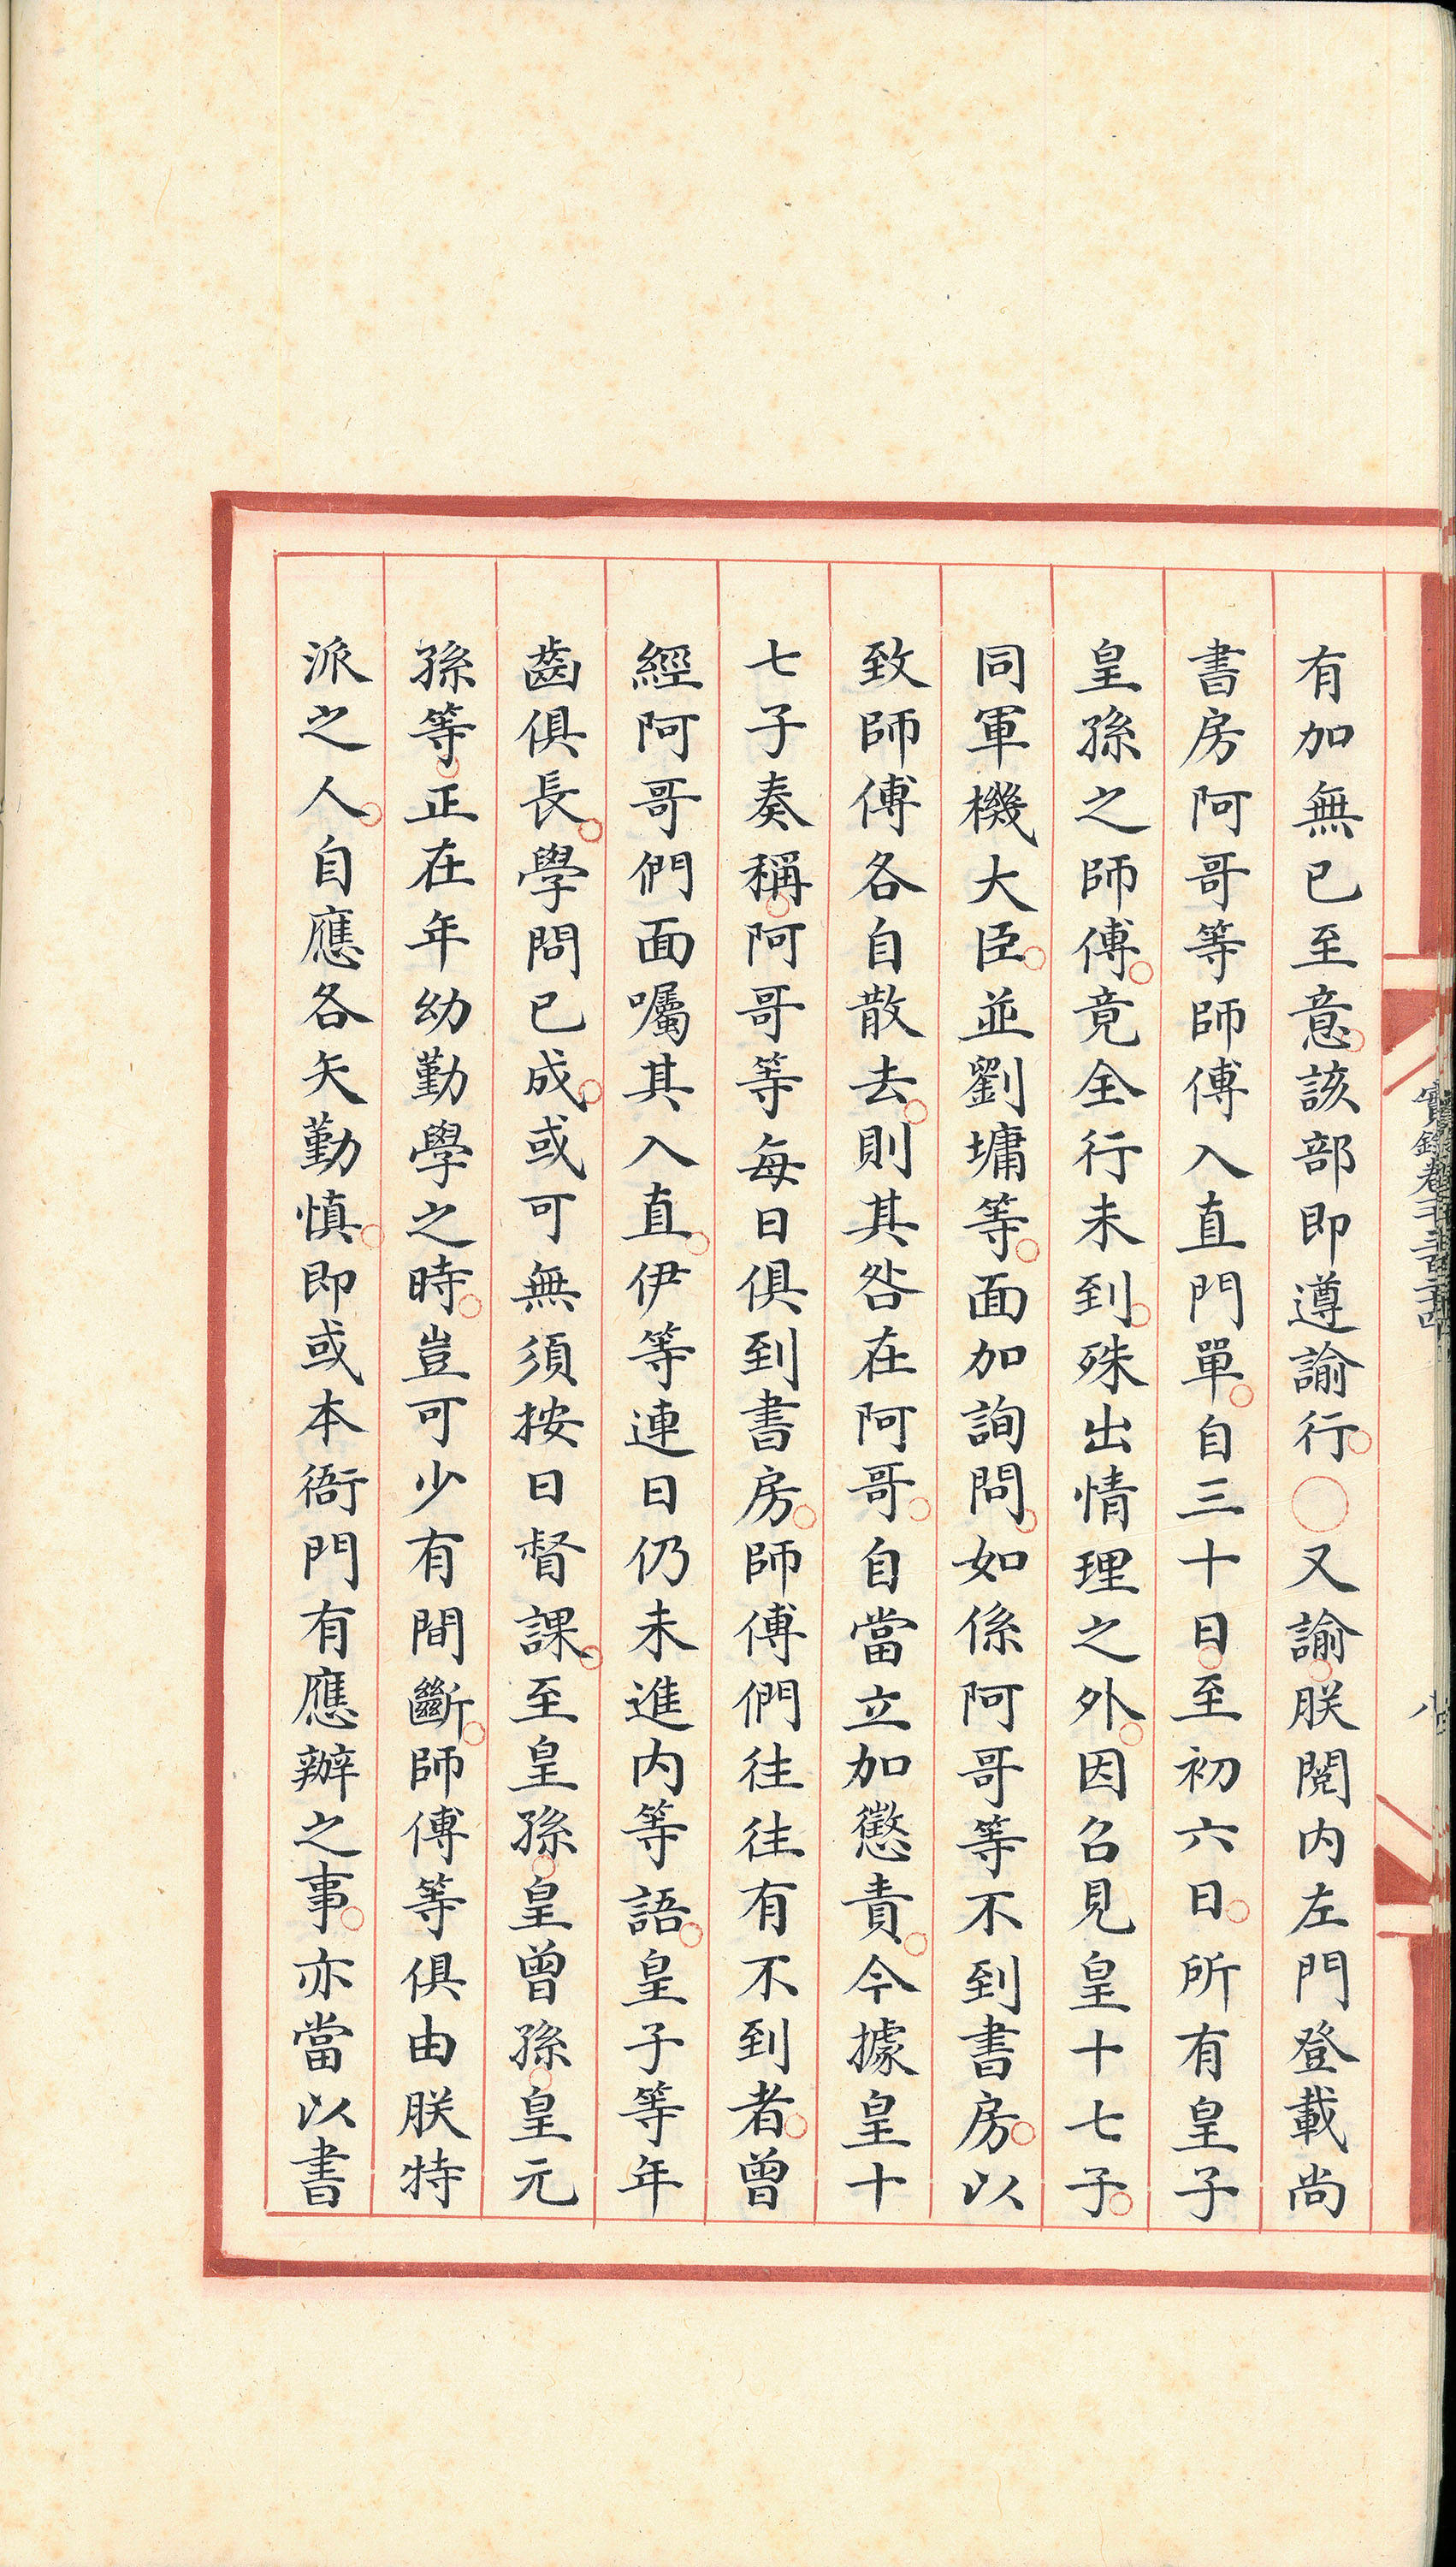 有加無已至意該部即遵諭行○又諭朕閱内左門登載尚
書房阿哥等師傅入直門單自三十日至初六日所有皇子
皇孫之師傅竟全行未到殊出情理之外因召見皇十七子
同軍機大臣並劉墉等面加詢問如係阿哥等不到書房以
致師傅各自散去則其咎在阿哥自當立加懲責今據皇十
七子奏稱阿哥等每日俱到書房師傅們往往有不到者曾
經阿哥們面囑其入直伊等連日仍未進内等語皇子等年
齒俱長學問已成或可無須按日督課至皇孫皇曾孫皇元
孫等正在年幼勤學之時豈可少有間斷師傅等俱由朕特
派之人自應各矢勤慎即或本衙門有應辦之事亦當以書